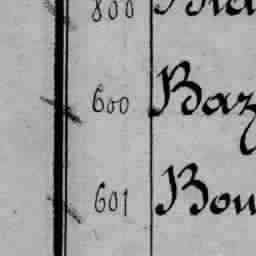 800
600 Baz
601 Bou